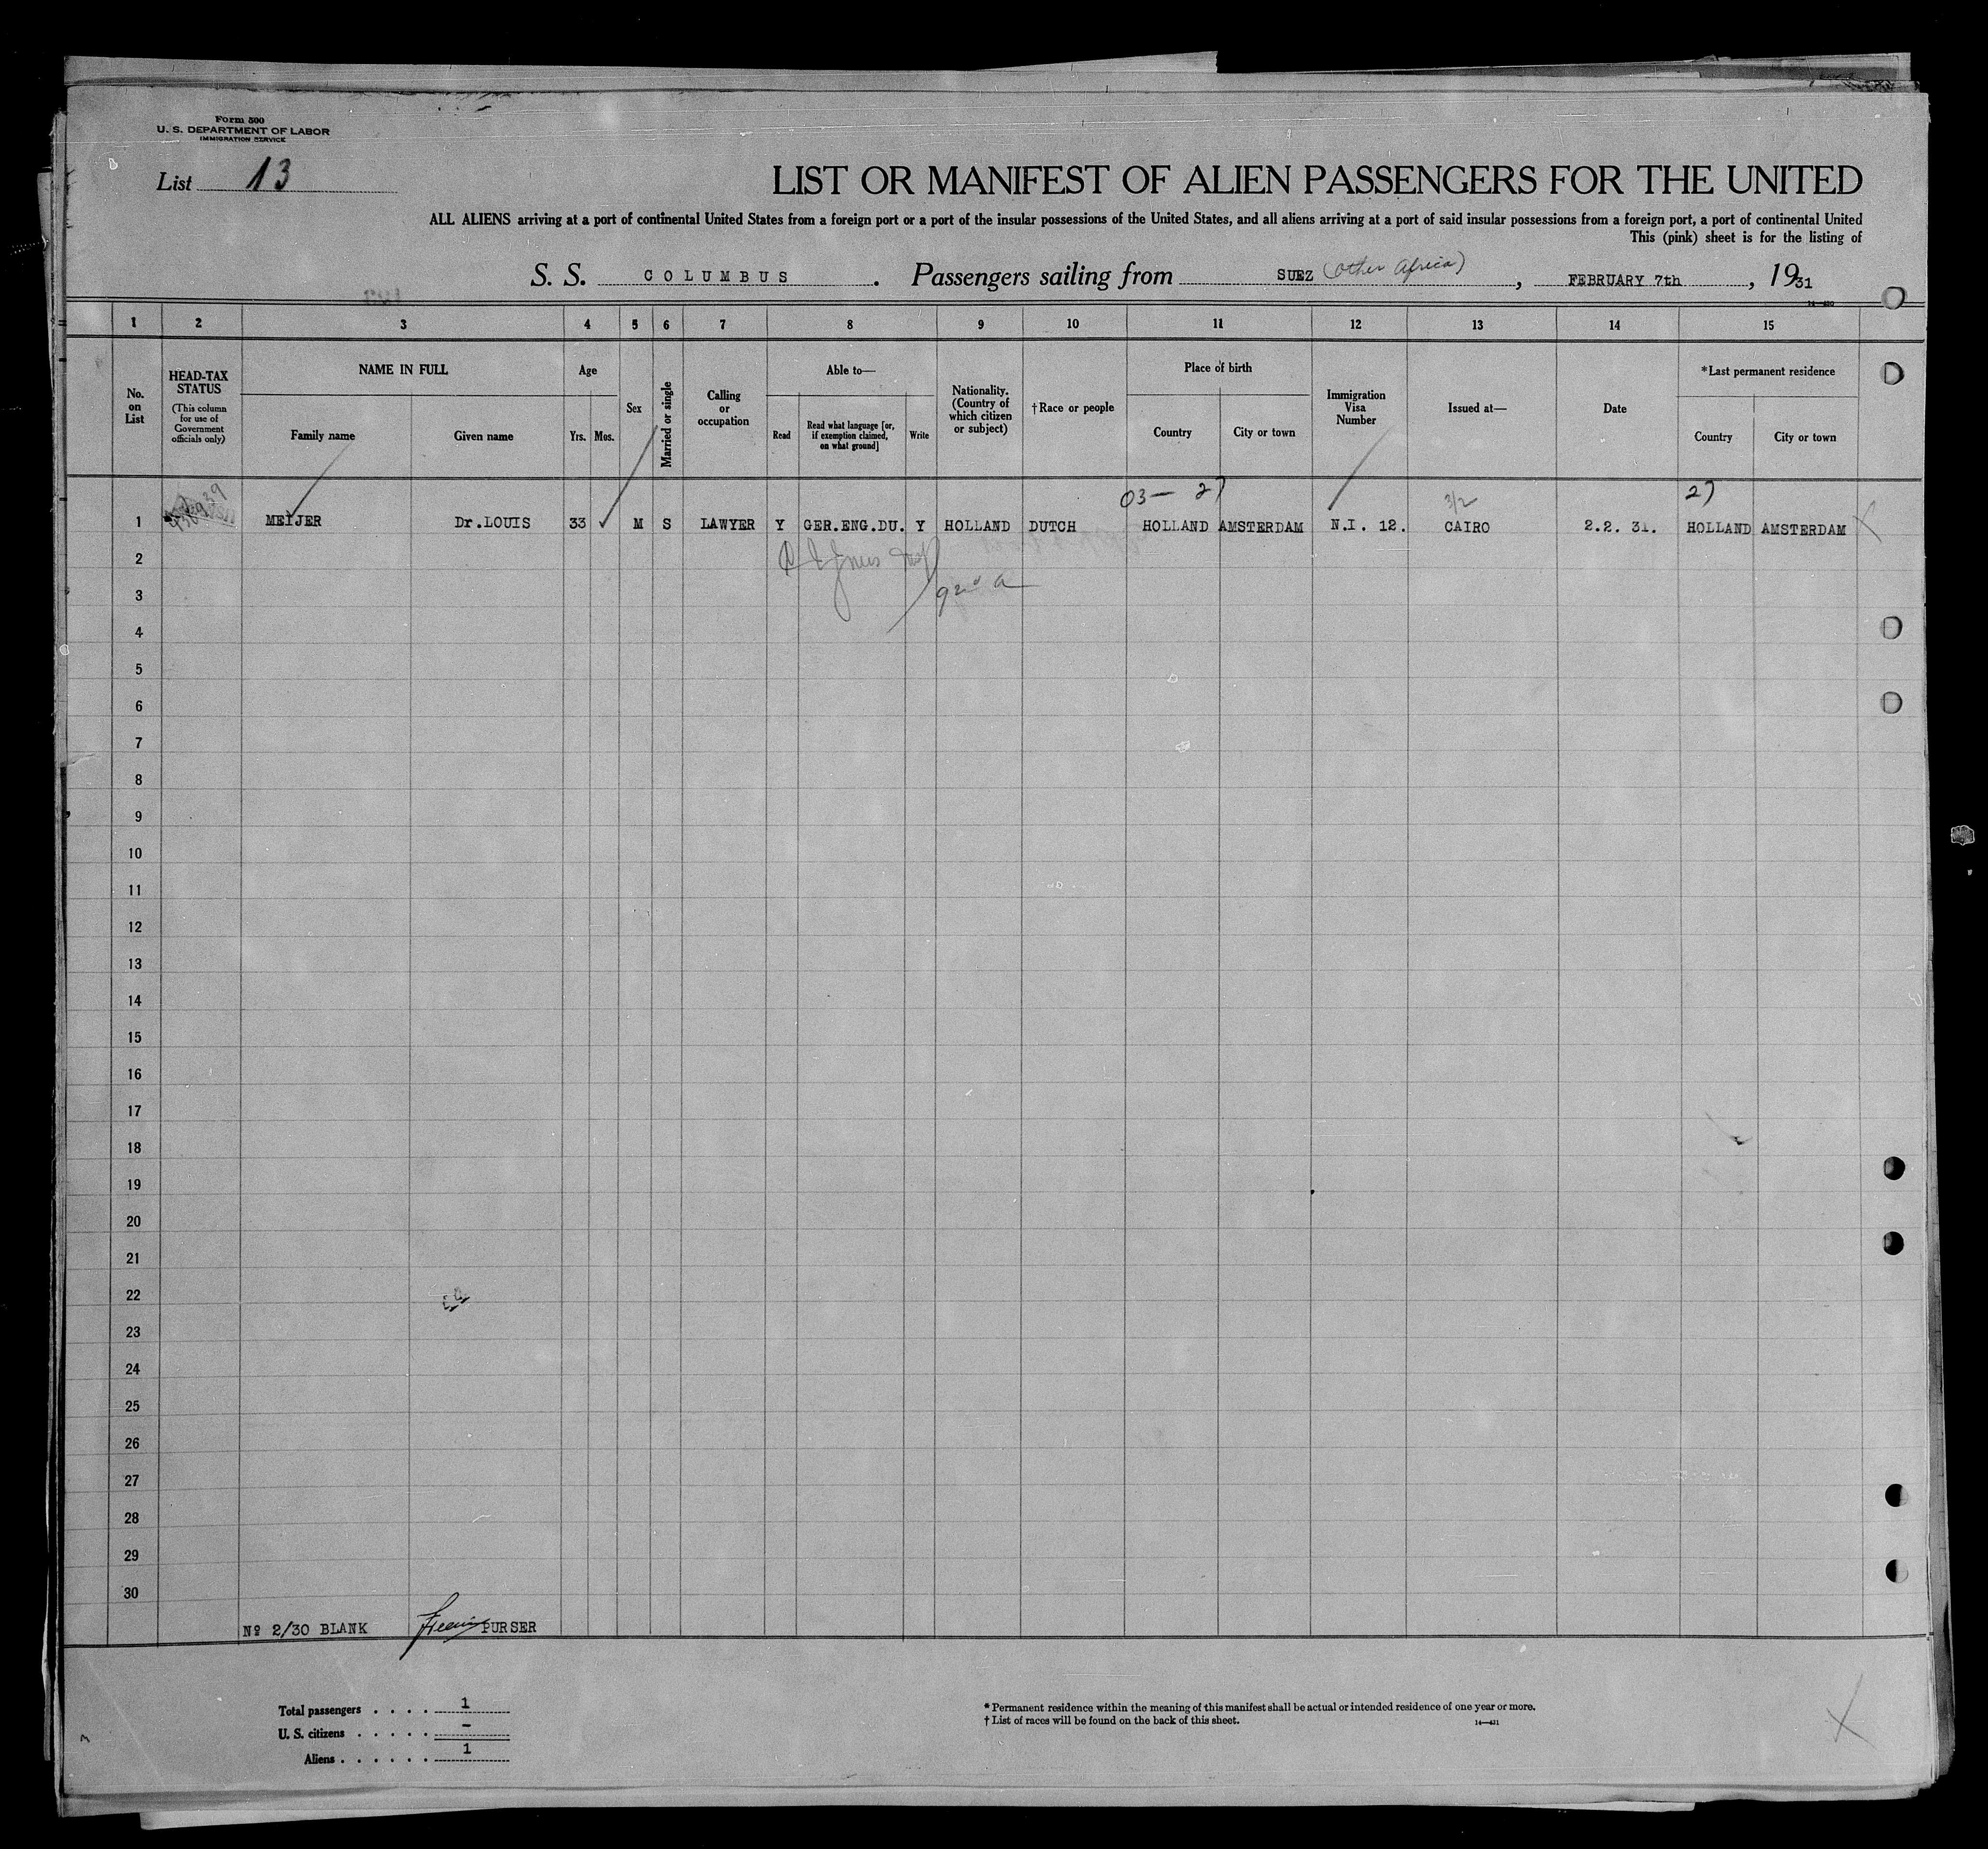 Form 500
U. S. DEPARTMENT OF LABOR
IMMIGRATION SERVICE
List 13
LIST OR MANIFEST OF ALIEN PASSENGERS FOR THE UNITED
ALL ALIENS arriving at a port of continental United States from a foreign port or a port of the insular possessions of the United States, and all aliens arriving at a port of said insular possessions from a foreign port, a port of continental United
This (pink) sheet is for the listing of
S. S. COLUMBUS. Passengers sailing from SUEZ (other Africa), FEBRUARY 7th, 1931
1 2 3 4 5 6 7 8 9 10 11 12 13 14 15
No. on List
HEAD-TAX STATUS
(This column for use of Government officials only)
NAME IN FULL
Family name
Given name
Age
Yrs.
Mos.
Sex
Married or single
Calling or occupation
Able to—
Read
Read what language [or, if exemption claimed, on what ground]
Write
Nationality. (Country of which citizen or subject)
†Race or people
Place of birth
Country
City or town
Immigration Visa Number
Issued at—
Date
*Last permanent residence
Country
City or town
03— 27 3/2 27
1 MEIJER Dr.LOUIS 33 M S LAWYER Y GER.ENG.DU. Y HOLLAND DUTCH HOLLAND AMSTERDAM N.I. 12. CAIRO 2.2. 31. HOLLAND AMSTERDAM
2
3
4
5
6
7
8
9
10
11
12
13
14
15
16
17
18
19
20
21
22
23
24
25
26
27
28
29
30
Nº 2/30 BLANK PURSER
Total passengers . . . . 1
U. S. citizens . . . . . –
Aliens . . . . . . 1
* Permanent residence within the meaning of this manifest shall be actual or intended residence of one year or more.
† List of races will be found on the back of this sheet.
14—431